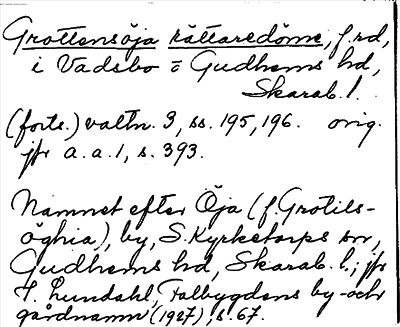 Grottensöja rättaredöme, f.rd,
i Vadsbo o Gudhems hd,
Skarab.l.
(forts.) valtn. 3, ss. 195, 196. orig.
jfr a.a. 1, s. 393.
Namnet efter Öja (f. Grotils-
öghia), by, S. Kyrketorps sn,
Gudhems hd, Skarab.l.; jfr
F. Lundahl, Falbygdens by- och
gårdnamn (1927), s. 67.